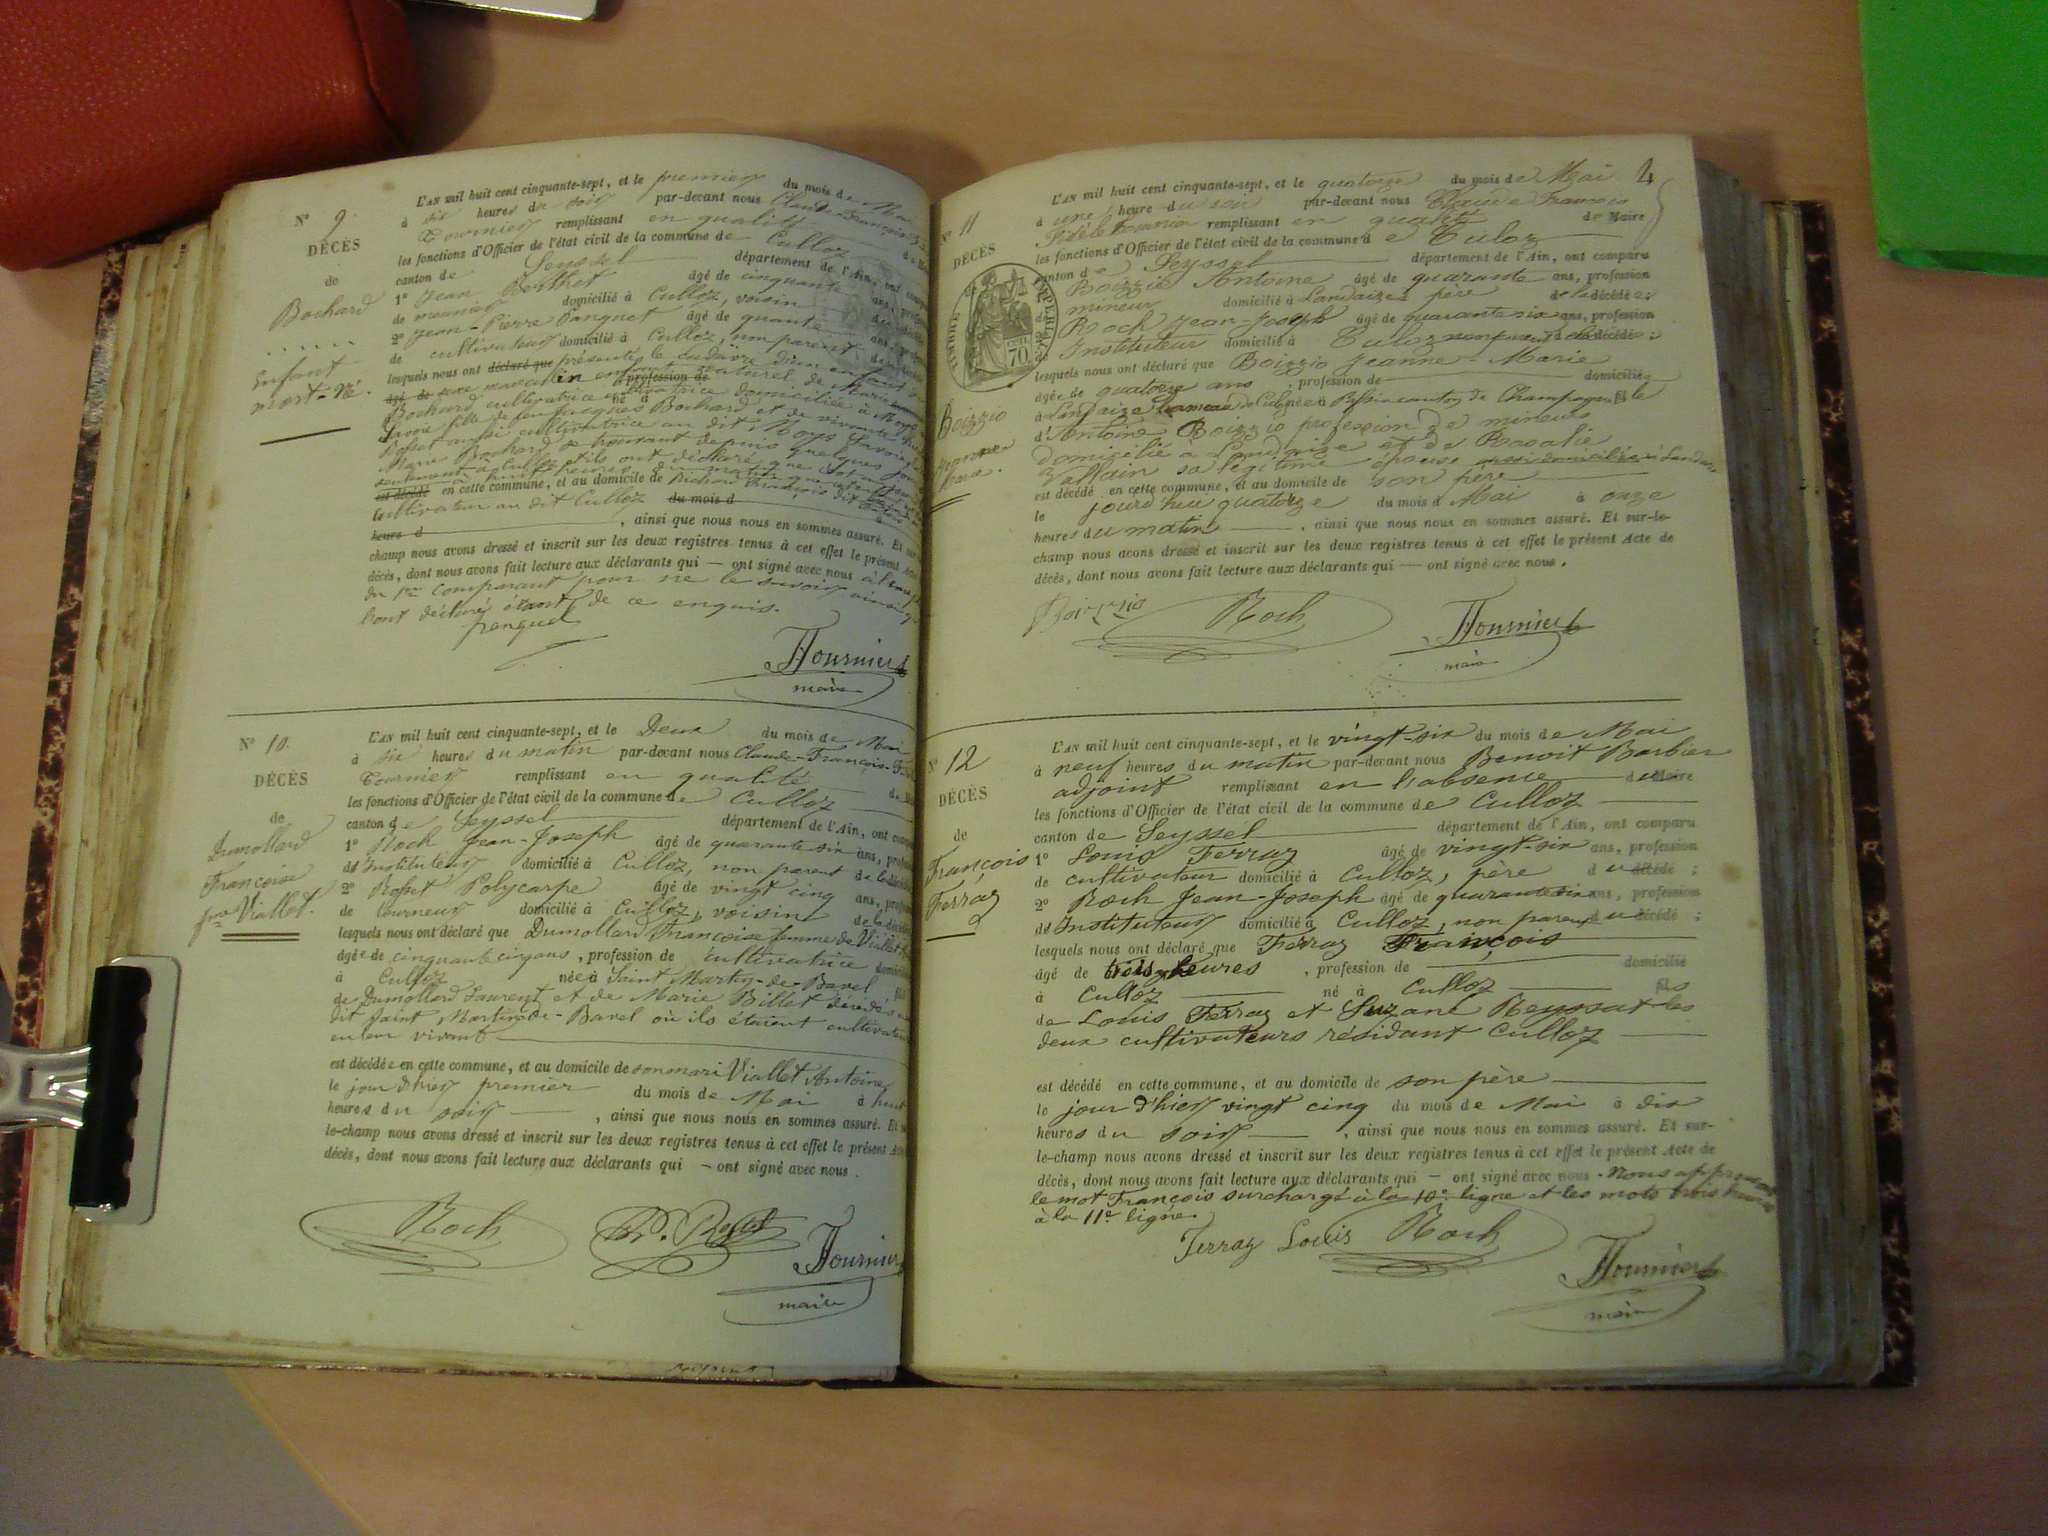 N° 9.
DÉCÈS
de
Bochard
enfant
mort-né.
L'AN mil huit cent cinquante-sept, et le premier du mois de Mai
à six heures du soir par-devant nous Claude-François
Tournier remplissant en qualité
les fonctions d'Officier de l'état civil de la commune de Culloz
canton de Seyssel département de l'Ain, ont
1° Jean Berthet âgé de cinquante ans,
de meunier domicilié à Culloz, voisin
2° Jean-Pierre Panguet âgé de
de cultivateur domicilié à Culloz, non parent
lesquels nous ont déclaré que présenté le cadavre d'un enfant
âgé de sexe masculin enfant naturel, de Marie
Bochard cultivatrice domiciliée à
Savoie fille de feu Jacques Bochard et de vivante
aussi cultivatrice au dit Savoie,
Marie Bochard se trouvant depuis quelques
à huit heures du matin
est décédé en cette commune, et au domicile de Richard François dit
cultivateur au dit Culloz du mois d
heures d , ainsi que nous nous en sommes assuré. Et
champ nous avons dressé et inscrit sur les deux registres tenus à cet effet le présent
décès, dont nous avons fait lecture aux déclarants qui — ont signé avec nous à
du 1er comparant pour ne le savoir ainsi
l'ont déclaré étant de ce enquis.
panguet
Tournier
maire
N° 10.
DÉCÈS
de
Dumollard
Françoise
fme Viallet.
L'AN mil huit cent cinquante-sept, et le Deux du mois de Mai
à six heures du matin par-devant nous Claude-François-
Tournier remplissant en qualité
les fonctions d'Officier de l'état civil de la commune de Culloz
canton de Seyssel département de l'Ain, ont
1° Roch Jean-Joseph âgé de quarante six ans,
d'Instituteur domicilié à Culloz, non parent de la
2° Robet Polycarpe âgé de vingt cinq ans,
de tourneur domicilié à Culloz, voisin de la
lesquels nous ont déclaré que Dumollard Françoise femme de Viallet
âgée de cinquante cinq ans, profession de cultivatrice
à Culloz née à Saint Martin-de-Bavel
de Dumollard Laurent et de Marie Billet décédés
dit Saint Martin-de-Bavel où ils étaient cultivateurs
en leur vivant
est décédée en cette commune, et au domicile de son mari Viallet Antoine
le jour d'hier premier du mois de Mai à huit
heures du soir , ainsi que nous nous en sommes assuré. Et
le-champ nous avons dressé et inscrit sur les deux registres tenus à cet effet le présent Acte
décès, dont nous avons fait lecture aux déclarants qui — ont signé avec nous.
Roch
Tournier
maire
4
N° 11
DÉCÈS
de
TIMBRE IMPERIAL
CENT. 70
Boizzio
Jeanne
Marie.
L'AN mil huit cent cinquante-sept, et le quatorze du mois de Mai
à une heure du soir par-devant nous Claude François
Fidèle Tournier remplissant en qualité de Maire
les fonctions d'Officier de l'état civil de la commune de Culoz
canton de Seyssel département de l'Ain, ont comparu
Boizzio Antoine âgé de quarante ans, profession
mineur domicilié à Landaize père de la décédée;
Roch Jean-Joseph âgé de quarante six ans, profession
Instituteur domicilié à Culoz non parent de la décédée;
lesquels nous ont déclaré que Boizzio Jeanne-Marie
âgée de quatorze ans , profession de domiciliée
à Landaize hameau de Culoz née à canton de Champagne le
d'Antoine Boizzio profession de mineurs
domicilié à Landaize et de Rosalie
Vallain sa légitime épouse aussi domiciliée à Landaize
est décédé en cette commune, et au domicile de son père
le jourd'hui quatorze du mois d Mai à onze
heures du matin , ainsi que nous nous en sommes assuré. Et sur-le-
champ nous avons dressé et inscrit sur les deux registres tenus à cet effet le présent Acte de
décès, dont nous avons fait lecture aux déclarants qui — ont signé avec nous.
Boizzio Roch Tournier
maire
N° 12
DÉCÈS
de
François
Ferraz
L'AN mil huit cent cinquante-sept, et le vingt-six du mois de Mai
à neuf heures du matin par-devant nous Benoit Barbier
adjoint remplissant en l'absence du Maire
les fonctions d'Officier de l'état civil de la commune de Culloz
canton de Seyssel département de l'Ain, ont comparu
1° Louis Ferraz âgé de vingt-six ans, profession
de cultivateur domicilié à Culloz, père du décédé ;
2° Roch Jean-Joseph âgé de quarante six ans, profession
d'Instituteur domicilié à Culloz, non parent du décédé ;
lesquels nous ont déclaré que Ferraz François
âgé de trois heures , profession de domicilié
à Culloz né à Culloz fils
de Louis Ferraz et Suzane Reyssat les
deux cultivateurs résidant Culloz
est décédé en cette commune, et au domicile de son père
le jour d'hier vingt cinq du mois de Mai à dix
heures du soir , ainsi que nous nous en sommes assuré. Et sur-
le-champ nous avons dressé et inscrit sur les deux registres tenus à cet effet le présent Acte de
décès, dont nous avons fait lecture aux déclarants qui — ont signé avec nous. Nous approuvons
le mot François surchargé à la 10e ligne et les mots trois heures
à la 11e ligne.
Ferraz Louis Roch
Tournier
maire